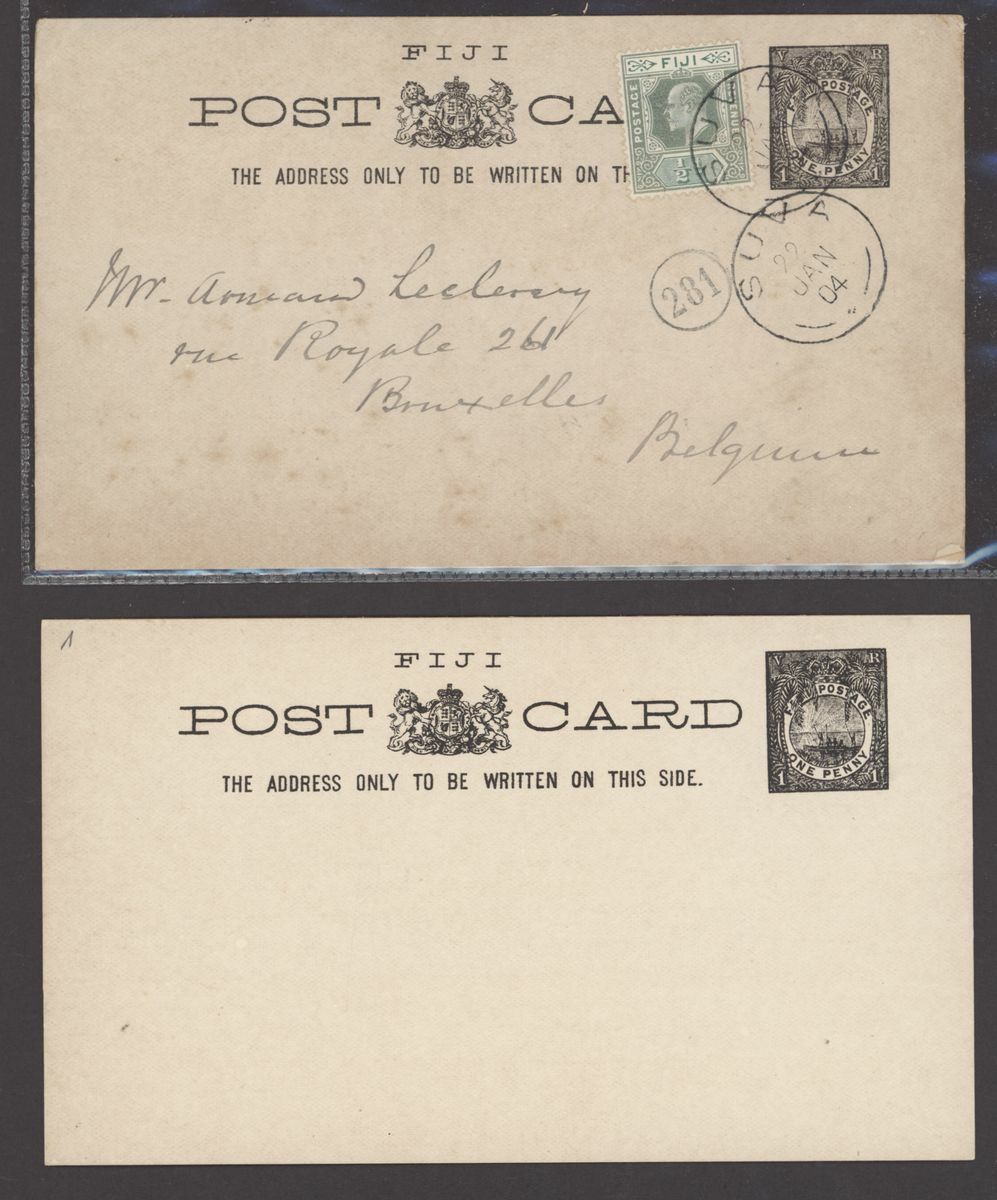 FIJI
POST CA
THE ADDRESS ONLY TO BE WRITTEN ON TH
FIJI
POSTAGE
REVENUE
1/2
V R
FIJI POSTAGE
ONE PENNY
1 1
SUVA
SUVA
22
JAN
04
281
Mr. Armand
rue Royale 261
Bruxelles
Belgium
FIJI
POST CARD
THE ADDRESS ONLY TO BE WRITTEN ON THIS SIDE.
V R
FIJI POSTAGE
ONE PENNY
1 1